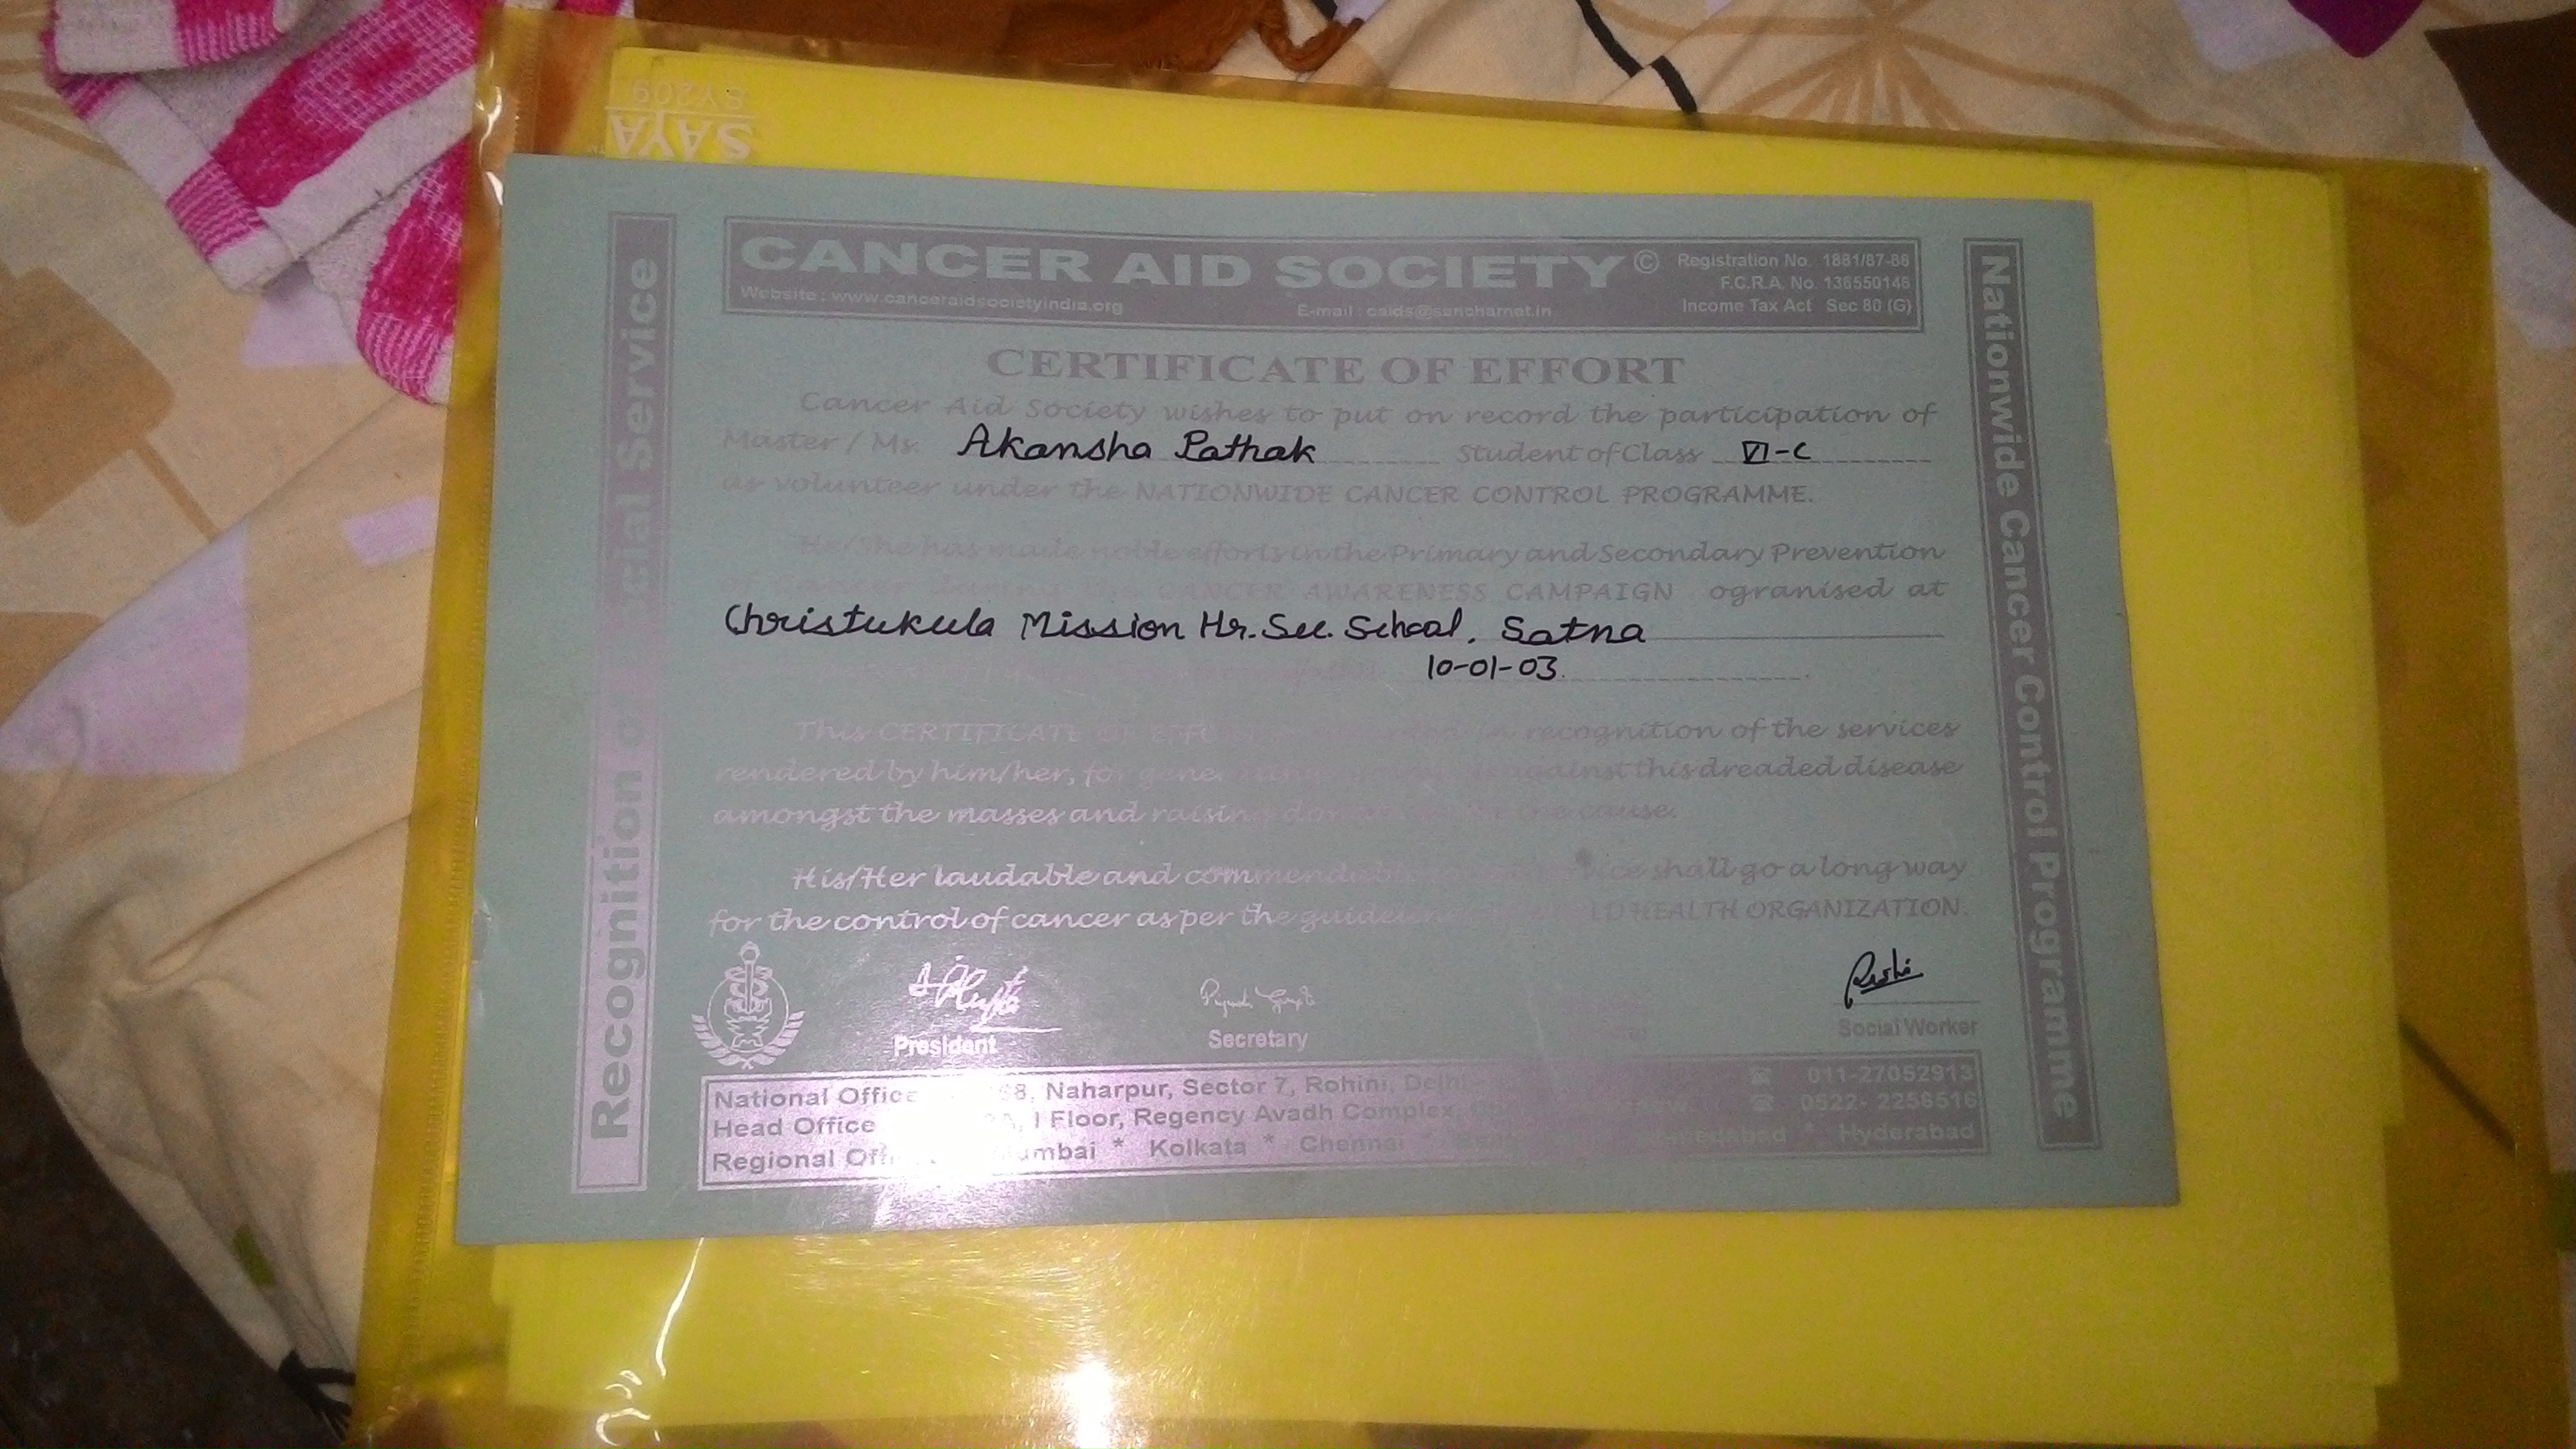 SAYA
SY209
CANCER AID SOCIETY ©
Registration No. 1881/87-88
F.C.R.A. No. 136550148
Income Tax Act Sec 80 (G)
Website : www.canceraidsocietyindia.org
E-mail : caids@sancharnet.in
Recognition of Social Service
CERTIFICATE OF EFFORT
Cancer Aid Society wishes to put on record the participation of
Master / Ms. Akansha Pathak Student of Class VI-C
as volunteer under the NATIONWIDE CANCER CONTROL PROGRAMME.
He/She has made noble efforts in the Primary and Secondary Prevention
of cancer during the CANCER AWARENESS CAMPAIGN ogranised at
Christukula Mission Hr. Sec. School, Satna
10-01-03
This CERTIFICATE OF in recognition of the services
rendered by him/her, for against this dreaded disease
amongst the masses and raising the cause.
His/Her laudable and shall go a long way
for the control of cancer as per the HEALTH ORGANIZATION.
President
Secretary
Social Worker
National Office Naharpur, Sector 7, Rohini, Delhi 011-27052913
Head Office I Floor, Regency Avadh Complex, 0522- 2256516
Regional Mumbai * Kolkata * Chennai * Ahmedabad * Hyderabad
Nationwide Cancer Control Programme